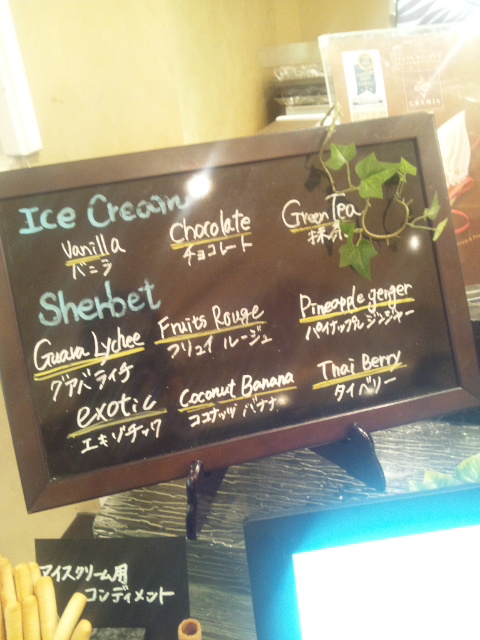 Ice Cream
Vanilla
バニラ
Chocolate
チョコレート
Green Tea
抹茶
Sherbet
Guava Lychee
グアバライチ
Fruits Rouge
フリュイ ルージュ
Pineapple genger
パイナップル ジンジャー
exotic
エキゾチック
Coconut Banana
ココナッツ バナナ
Thai Berry
タイベリー
アイスクリーム用
コンディメント
CREMIA